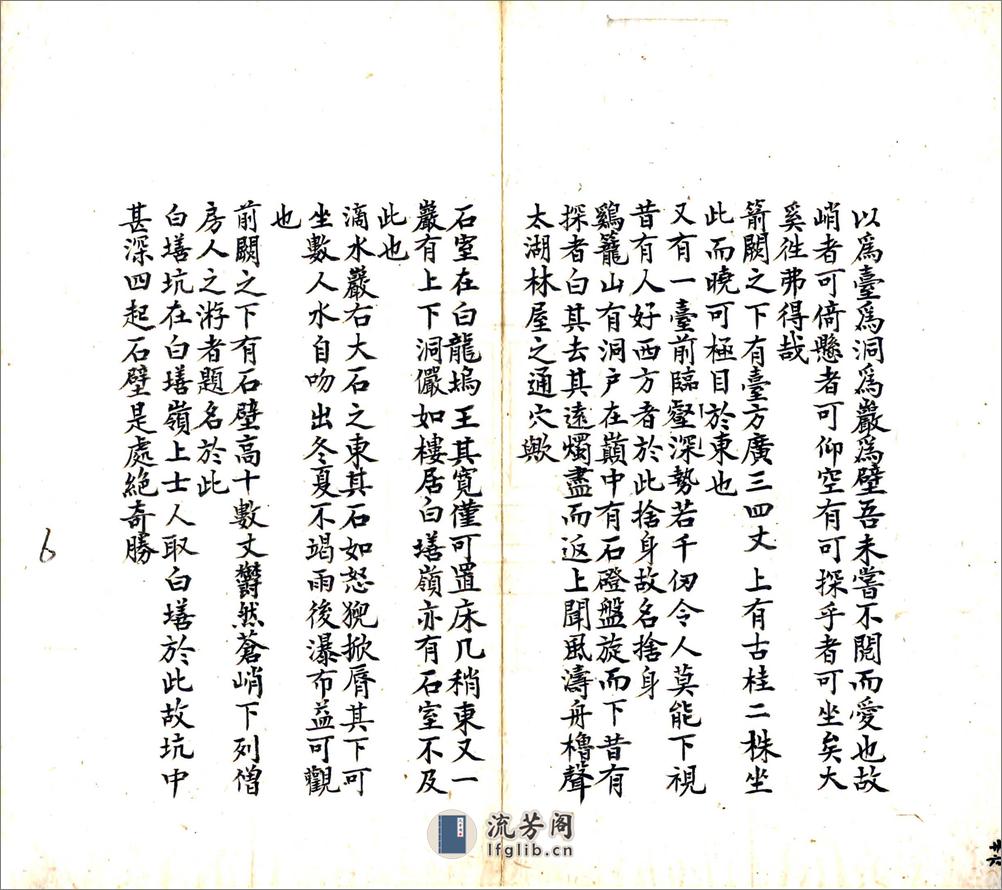 以爲臺爲洞爲巖爲壁吾未嘗不閱而愛也故
峭者可倚懸者可仰空有可探乎者可坐矣大
奚徃弗得哉
箭闕之下有臺方廣三四丈上有古桂二株坐
此而曉可極目於東也
又有一臺前臨壑深勢若千仞令人莫能下視
昔有人好西方者於此捨身故名捨身
鷄籠山有洞户在巔中有石磴盤旋而下昔有
探者白其去其遠燭盡而返上聞風濤舟櫓聲
太湖林屋之通穴歟
石室在白龍塢王其寬僅可置床几稍東又一
巖有上下洞儼如樓居白墡嶺亦有石室不及
此也
滴水巖右大石之東其石如怒猊掀脣其下可
坐數人水自吻出冬夏不竭雨後瀑布益可觀
也
前闕之下有石壁高十數丈欝然蒼峭下列僧
房人之游者題名於此
白墡坑在白墡嶺上士人取白墡於此故坑中
甚深四起石壁是處絕奇勝
6
流芳阁
lfglib.cn.com